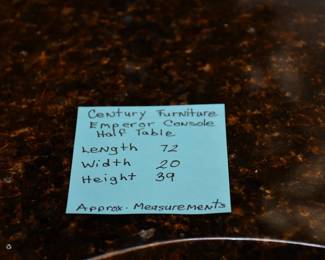 Century Furniture
Emperor Console
Half Table
Length 72
Width 20
Height 39
Approx. Measurements